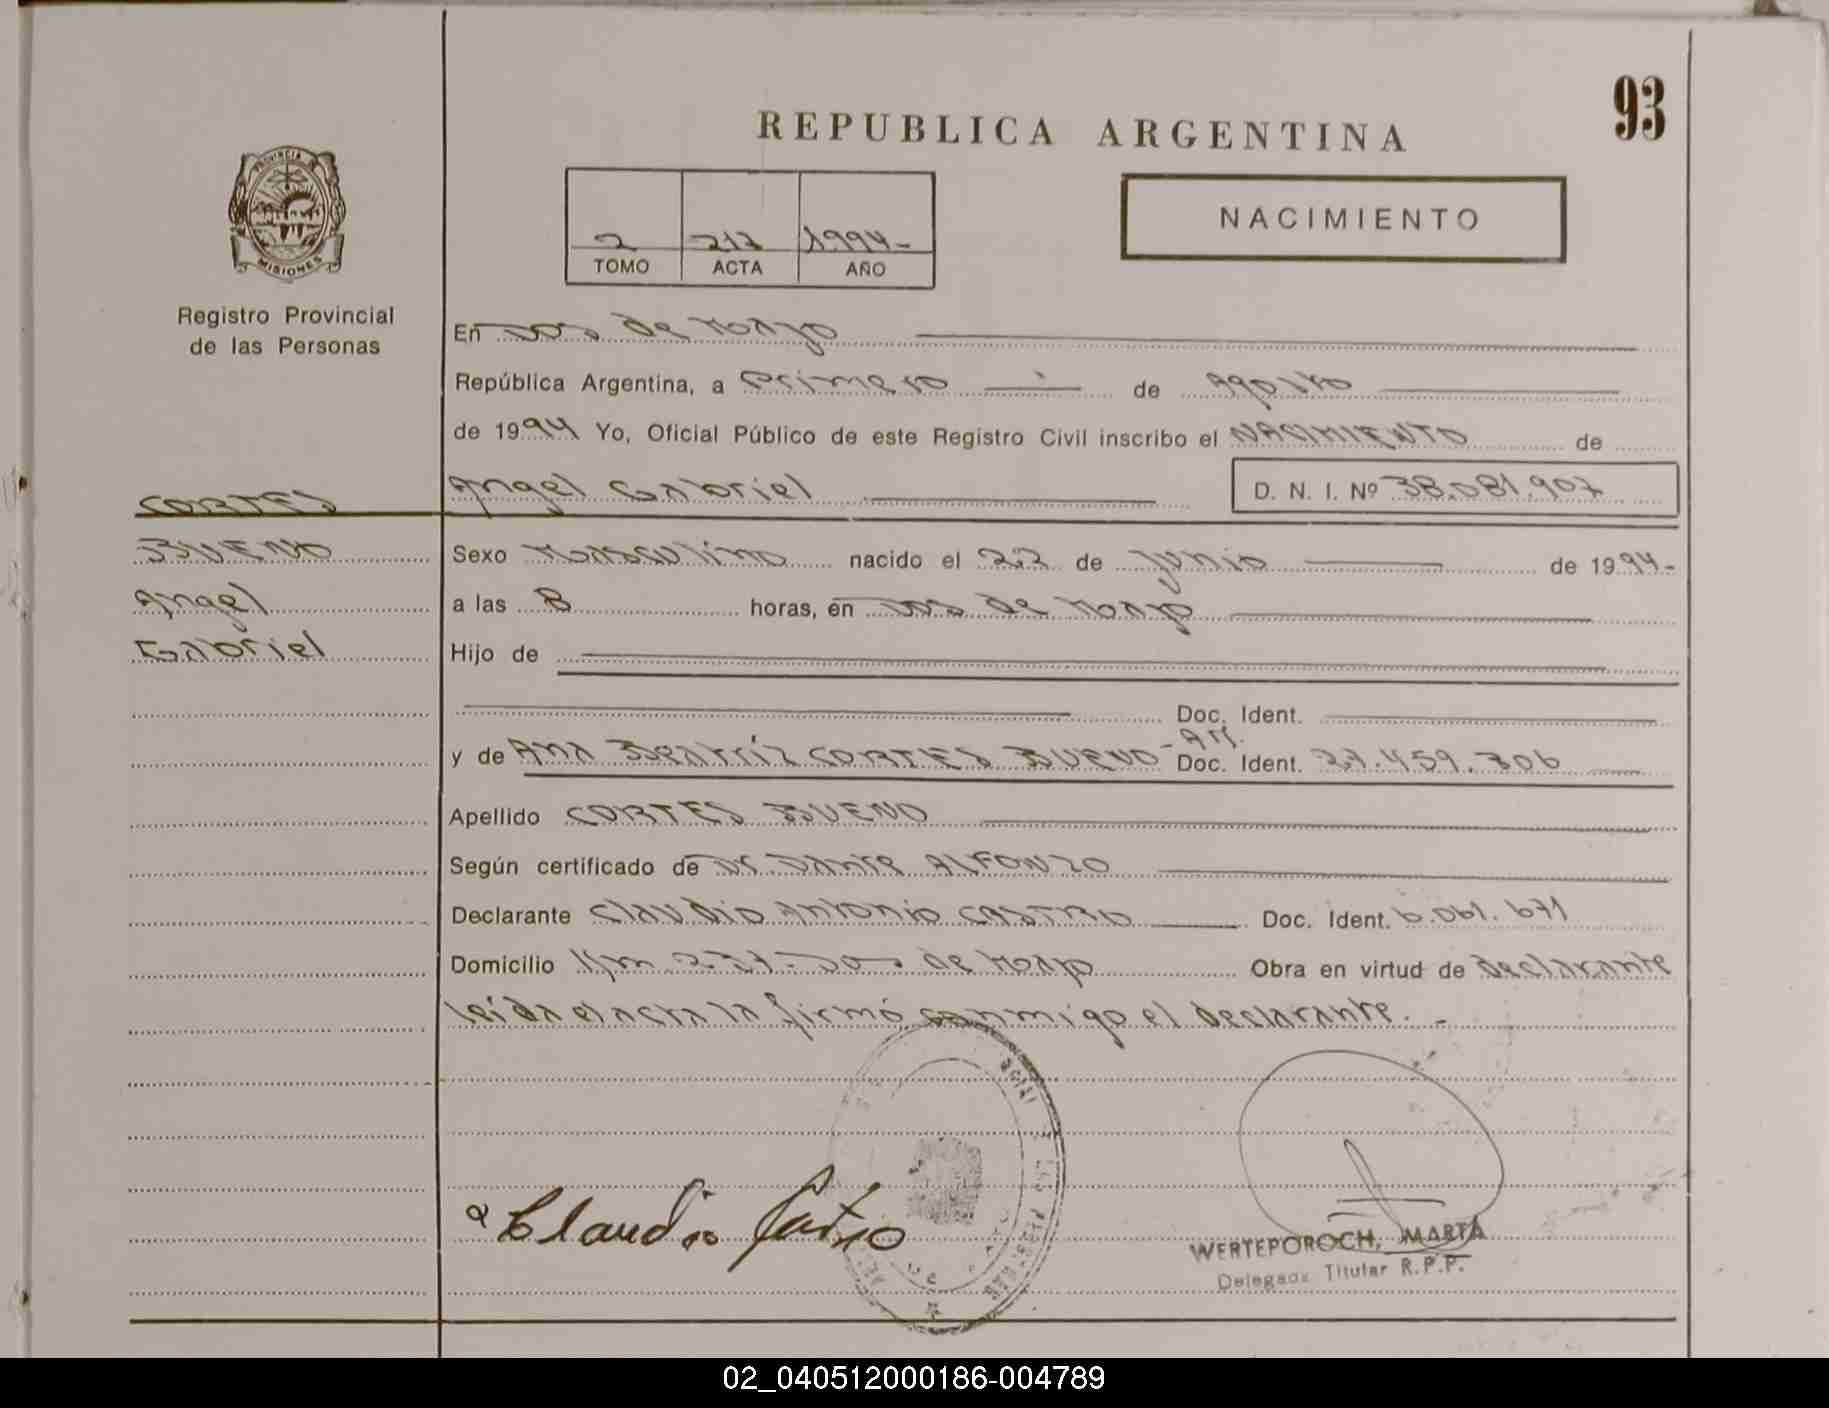 93
REPUBLICA ARGENTINA
PROVINCIA D
MISIONES
Registro Provincial
de las Personas
2 217 1994-
TOMO ACTA AÑO
NACIMIENTO
En Dos de Mayo
República Argentina, a primero de Agosto
de 1994 Yo, Oficial Público de este Registro Civil inscribo el NACIMIENTO de
CORTES
BUENO
Angel
Gabriel
Angel Gabriel D. N. I. Nº 38.081.907
Sexo Masculino nacido el 22 de junio de 1994-
a las 8 horas, en Dos de Mayo
Hijo de
Doc. Ident.
y de Ana Beatriz CORTES BUENO - Arg. Doc. Ident. 27.459.306
Apellido CORTES BUENO
Según certificado de Dr. Dante ALFONZO
Declarante Claudio Antonio CASTRO Doc. Ident. 6.061.671
Domicilio Km 237-Dos de Mayo Obra en virtud de declarante
leída el acta la firmó conmigo el declarante.-
Claudio Castro
WERTEPOROCH, MARTA
Delegada Titular R.P.P.
02_040512000186-004789